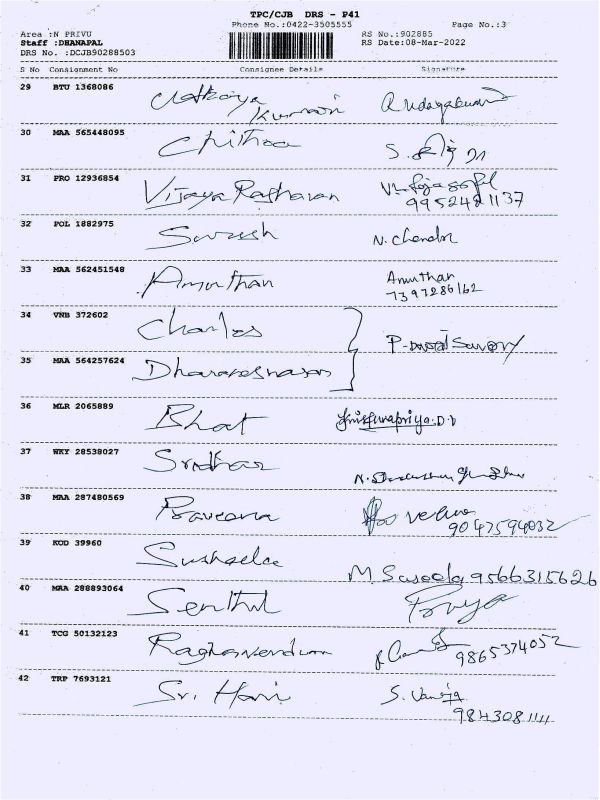 TPC/CJB DRS - P41
Phone No.:0422-3505555 Page No.:3
Area :N PRIVU RS No.:902885
Staff :DHANAPAL RS Date:08-Mar-2022
DRS No. :DCJB90288503
S No Consignment No Consignee Details Signature
29 BTU 1368086 Kumari
30 MAA 565448095 Chithra S.
31 PRO 12936854 Vijaya Raghavan
9952421137
32 POL 1882975 Suresh N. Chendr
33 MAA 562451548 Amuthan Amuthan
7397286162
34 VNB 372602 Charles
P-
35 MAA 564257624
36 MLR 2065889 Bhat Krishnapriya.D.V
37 WKY 28538027 Sridhar N.
38 MAA 287480569 Praveena
9047594032
39 KOD 39960 Susheela M. Saroola 9566315626
40 MAA 288893064 Senthil Priya
41 TCG 50132123 Raghavendran
9865374052
42 TRP 7693121 Sri. Hari S. Vanija
9843081111